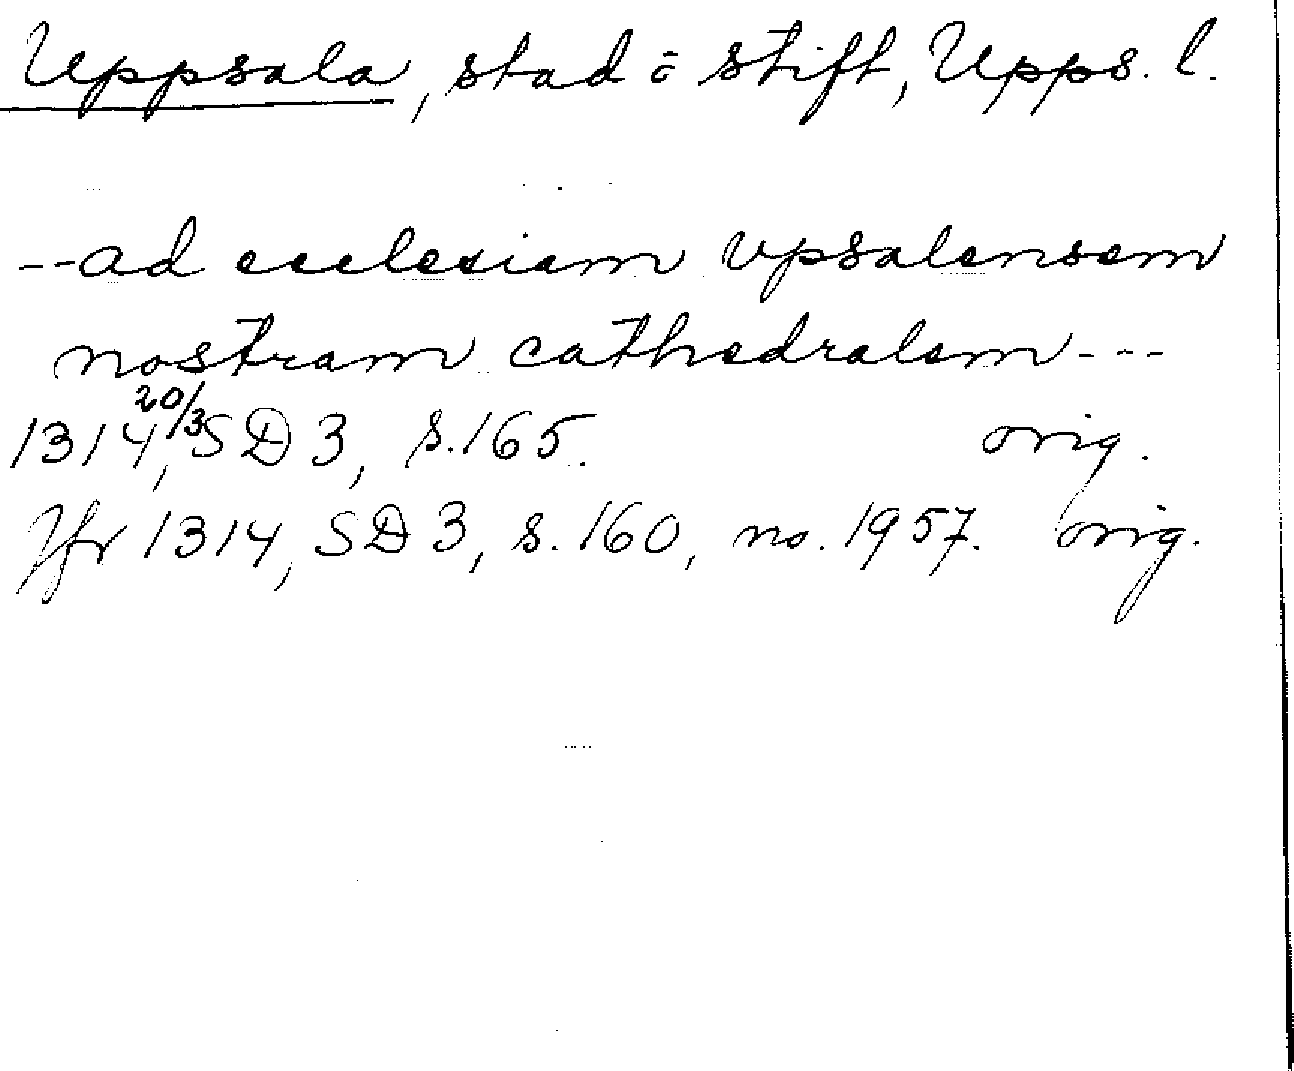 Uppsala, stad o stift, Upps. l.
--ad ecclesiam vpsalensem
nostram cathedralem---
1314 20/3, SD 3, s. 165. orig.
Jfr 1314, SD 3, s. 160, no. 1957. orig.